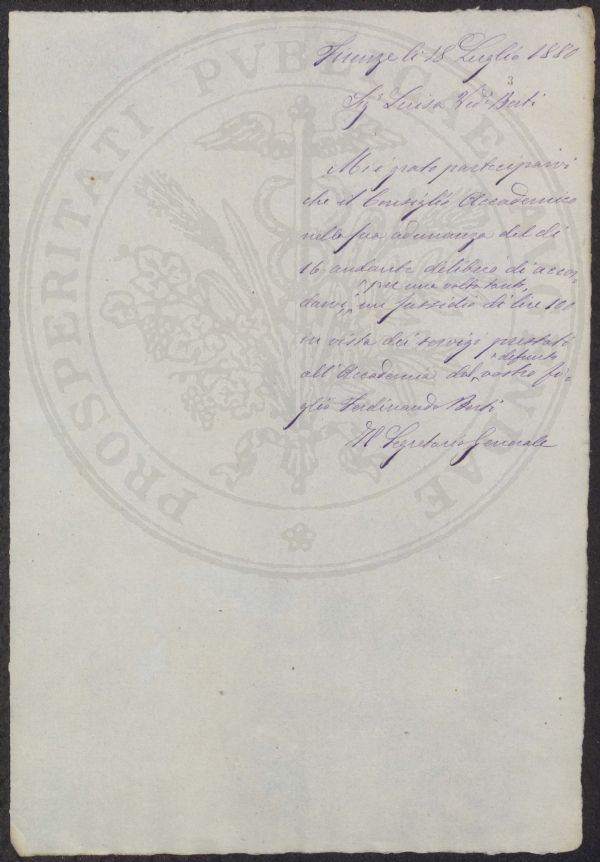 Firenze li 18 Luglio 1880
3
Sig.ª Luisa Ved.ª Berti
Mi è grato parteciparvi
che il Consiglio Accademico
nella sua adunanza del di
16 andante deliberò di accor-
per una volta tanto,
darvi, un sussidio di lire 100
in vista dei servigi prestati
defunto
all'Accademia dal vostro fi-
glio Ferdinando Berti
Il Segretario Generale
PROSPERITATI PVBLICAE AVGENDAE